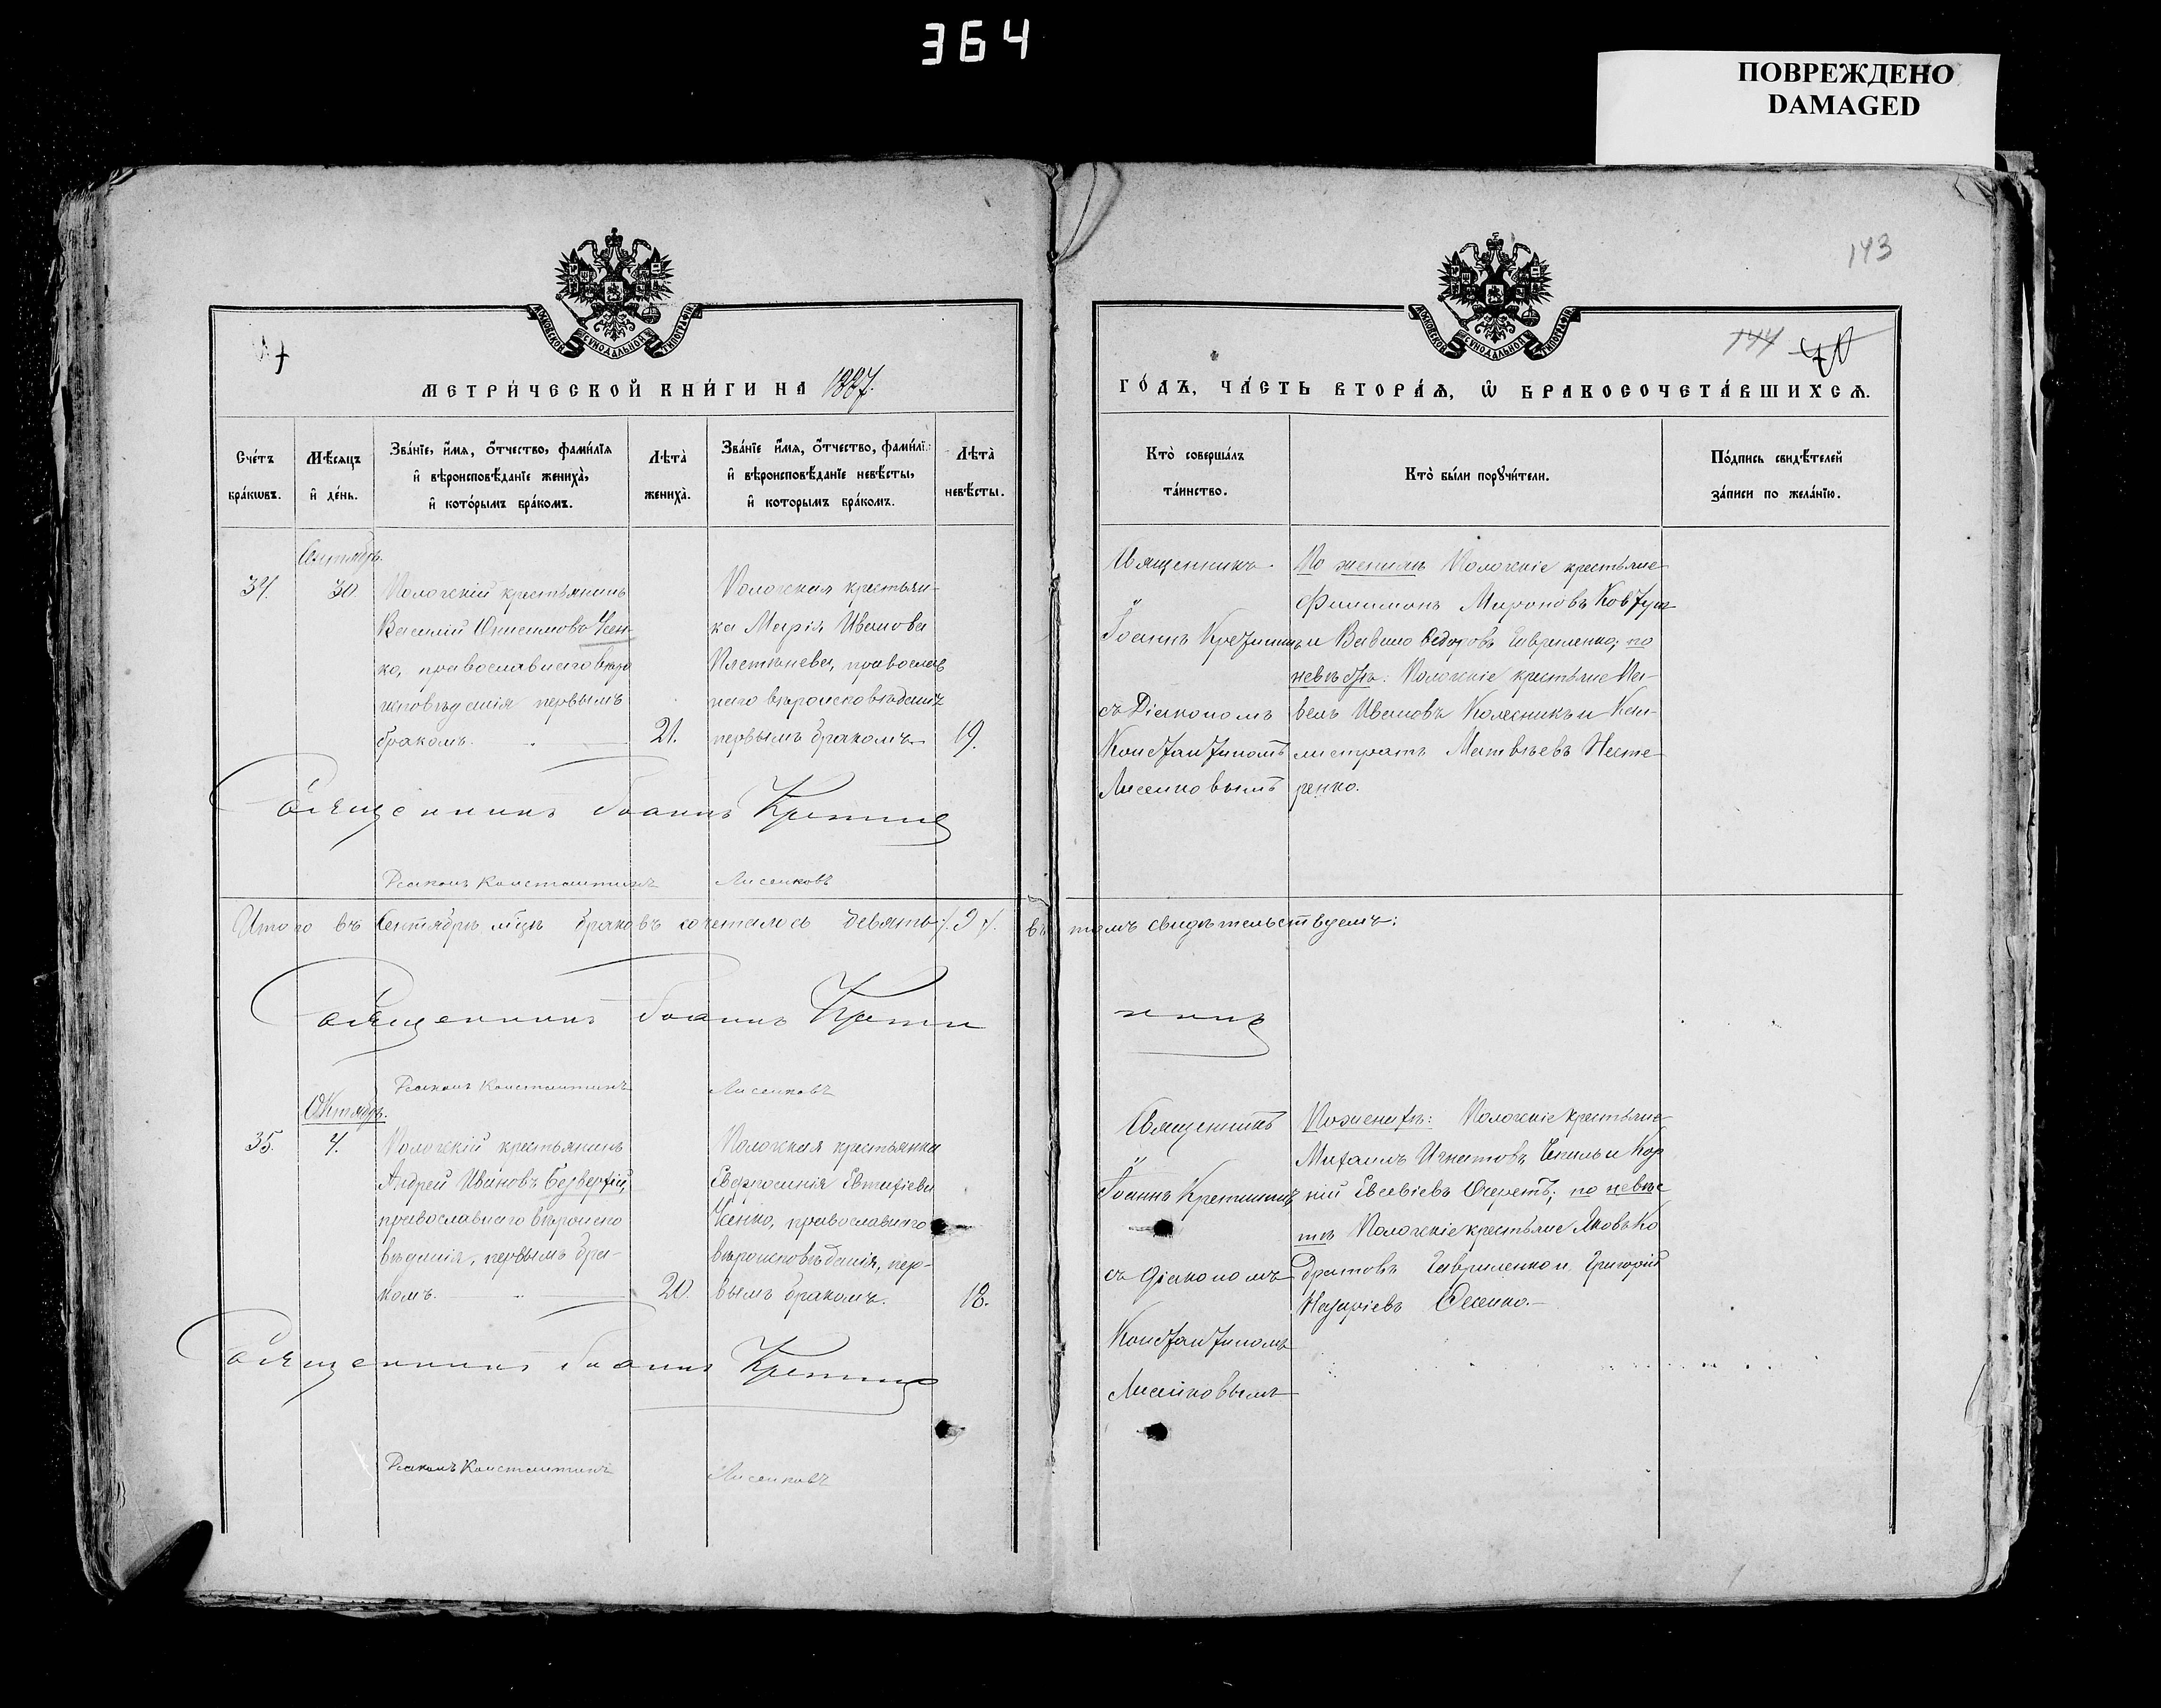 364
ПОВРЕЖДЕНО
DAMAGED
143
144
МЕТРИ́ЧЕСКОЙ КНИ́ГИ НА 1887.
ГО́ДЪ, ЧА́СТЬ ВТОРА́Ѧ, Ѡ҆ БРАКОСОЧЕТА́ВШИХСѦ.
Сче́тъ бра́кѡвъ.
Мѣ́сѧцъ и҆ де́нь.
Зва́нїе, и҆́мѧ, ѻ҆́тчество, фами́лїѧ и҆ вѣроисповѣ́данїе жениха̀, и҆ кото́рымъ бра́комъ.
Лѣта̀ жениха̀.
Зва́нїе и҆́мѧ, ѻ҆́тчество, фами́лї: и҆ вѣроисповѣ́данїе невѣ́сты, и҆ которымъ бра́комъ.
Лѣта̀ невѣ́сты.
Кто̀ соверша́лъ та́инство.
Кто̀ бы́ли порꙋчи́тели.
По́дпись свидѣ́телей за́писи по жела́нїю.
Сентябрь.
34.
30
Пологскій крестьянинъ
Василій Онисимовъ Ченко,
православнаго вѣро
исповѣданія первымъ
бракомъ.
21.
Пологская крестьян-
ка Марія Иванова
православ
наго вѣроисповѣданія
первымъ бракомъ.
19.
Священникъ
Іоаннъ Кретининъ
съ Діакономъ
Константиномъ
Лисенковымъ
По женихѣ Пологскіе крестьяне
Филимонъ Мироновъ Ковтун
и Вавило Ѳедоровъ Гавриленко; по
невѣстѣ: Пологскіе крестьяне Па-
велъ Ивановъ Колесникъ и Кали-
стратъ Матвѣевъ Несте-
ренко.
Священникъ Іоаннъ Кретининъ
Діаконъ Константинъ Лисенковъ
Итого въ Сентябрѣ м-цѣ браковъ сочеталось девять /.9./. въ томъ свидѣтельствуемъ:
Священникъ Іоаннъ Крети нинъ
Діаконъ Константинъ Лисенковъ
Октябрь.
35.
4.
Пологскій крестьянинъ
Андрей Ивановъ Безверхій,
православнаго вѣроиспо
вѣданія, первымъ бра-
комъ.
20.
Пологская крестьянка
Евфросинія Евтихіева
Ченко, православнаго
вѣроисповѣданія, пер-
вымъ бракомъ.
18.
Священникъ
Іоаннъ Кретининъ
съ Діакономъ
Константиномъ
Лисенковымъ
По женихѣ: Пологскіе крестьяне
Михаилъ Игнатовъ и Кор
ній Евсевіевъ Очеретъ; по невѣс
тѣ Пологскіе крестьяне Яковъ Ко
дратовъ Гавриленко и Григорій
Назаріевъ
Священникъ Іоаннъ Кретининъ
Діаконъ Константинъ Лисенковъ